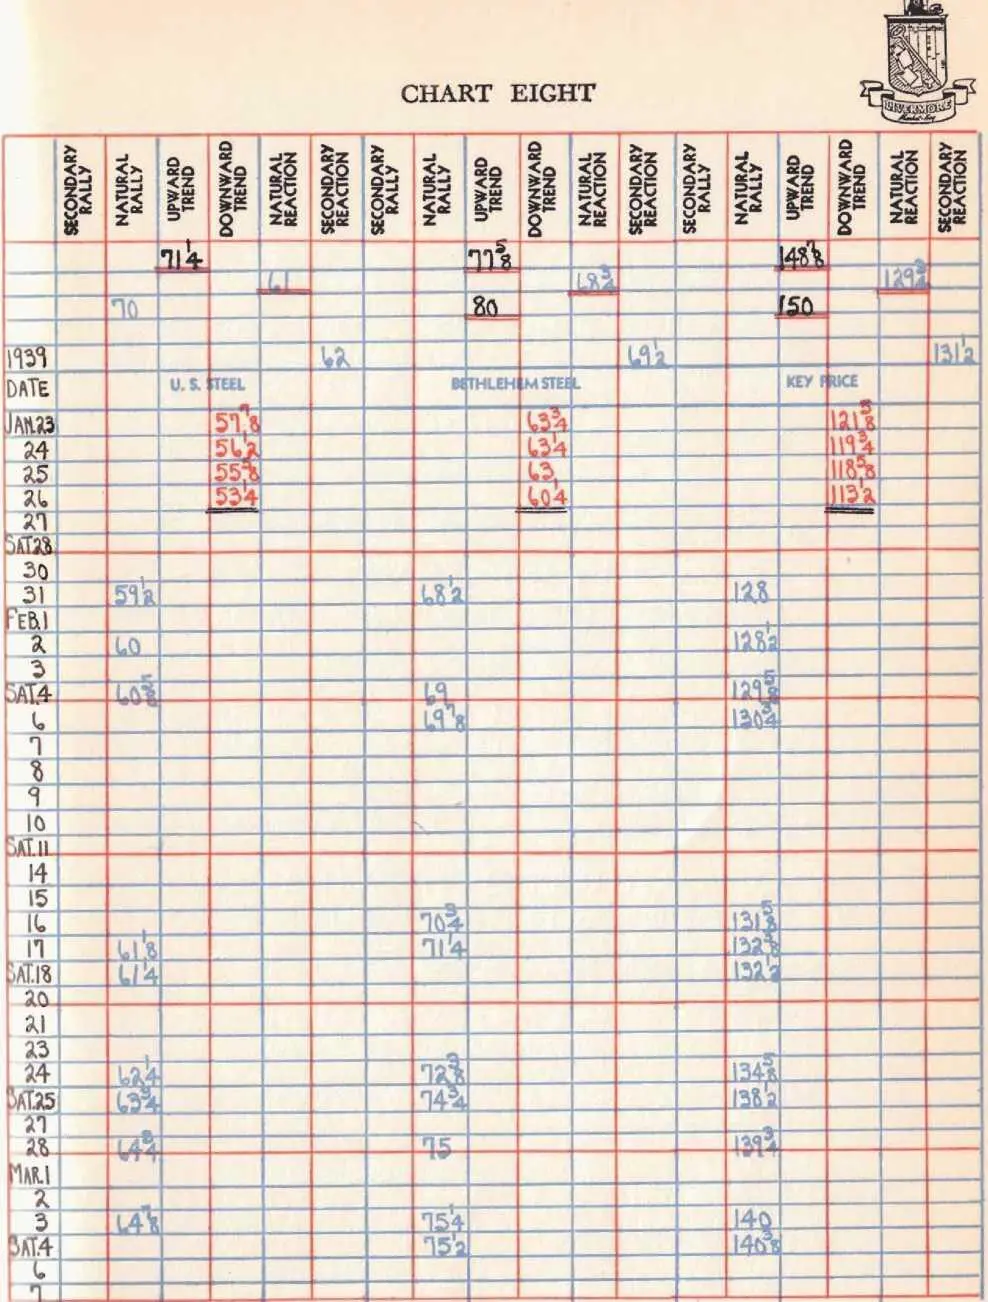 LIVERMORE
Market Key
CHART EIGHT
SECONDARY RALLY NATURAL RALLY UPWARD TREND DOWNWARD TREND NATURAL REACTION SECONDARY REACTION SECONDARY RALLY NATURAL RALLY UPWARD TREND DOWNWARD TREND NATURAL REACTION SECONDARY REACTION SECONDARY RALLY NATURAL RALLY UPWARD TREND DOWNWARD TREND NATURAL REACTION SECONDARY REACTION
71 1/4 77 5/8 148 7/8
61 68 3/4 129 3/4
70 80 150
1939 62 69 1/2 131 1/2
DATE U. S. STEEL BETHLEHEM STEEL KEY PRICE
JAN.23 57 7/8 63 3/4 121 5/8
24 56 1/2 63 1/4 119 3/4
25 55 5/8 63 118 5/8
26 53 1/4 60 1/4 113 1/2
27
SAT.28
30
31 59 1/2 68 1/2 128
FEB.1
2 60 128 1/2
3
SAT.4 60 5/8 69 129 5/8
6 69 7/8 130 3/4
7
8
9
10
SAT.11
14
15
16 70 3/4 131 5/8
17 61 1/8 71 1/4 132 3/8
SAT.18 61 1/4 132 1/2
20
21
23
24 62 1/4 72 3/8 134 5/8
SAT.25 63 3/4 74 3/4 138 1/2
27
28 64 3/4 75 139 3/4
MAR.1
2
3 64 7/8 75 1/4 140
SAT.4 75 1/2 140 3/8
6
7